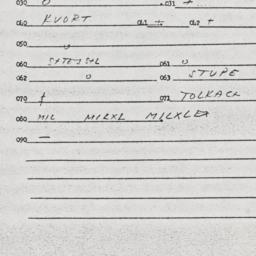 030 0 .031 +
040 KVORT 041 + 042 +
050 0
060 061 0
062 0 063 STUPE
070 + 071 TOLKACH
080 MIL MILXL MILXLEA
090 —